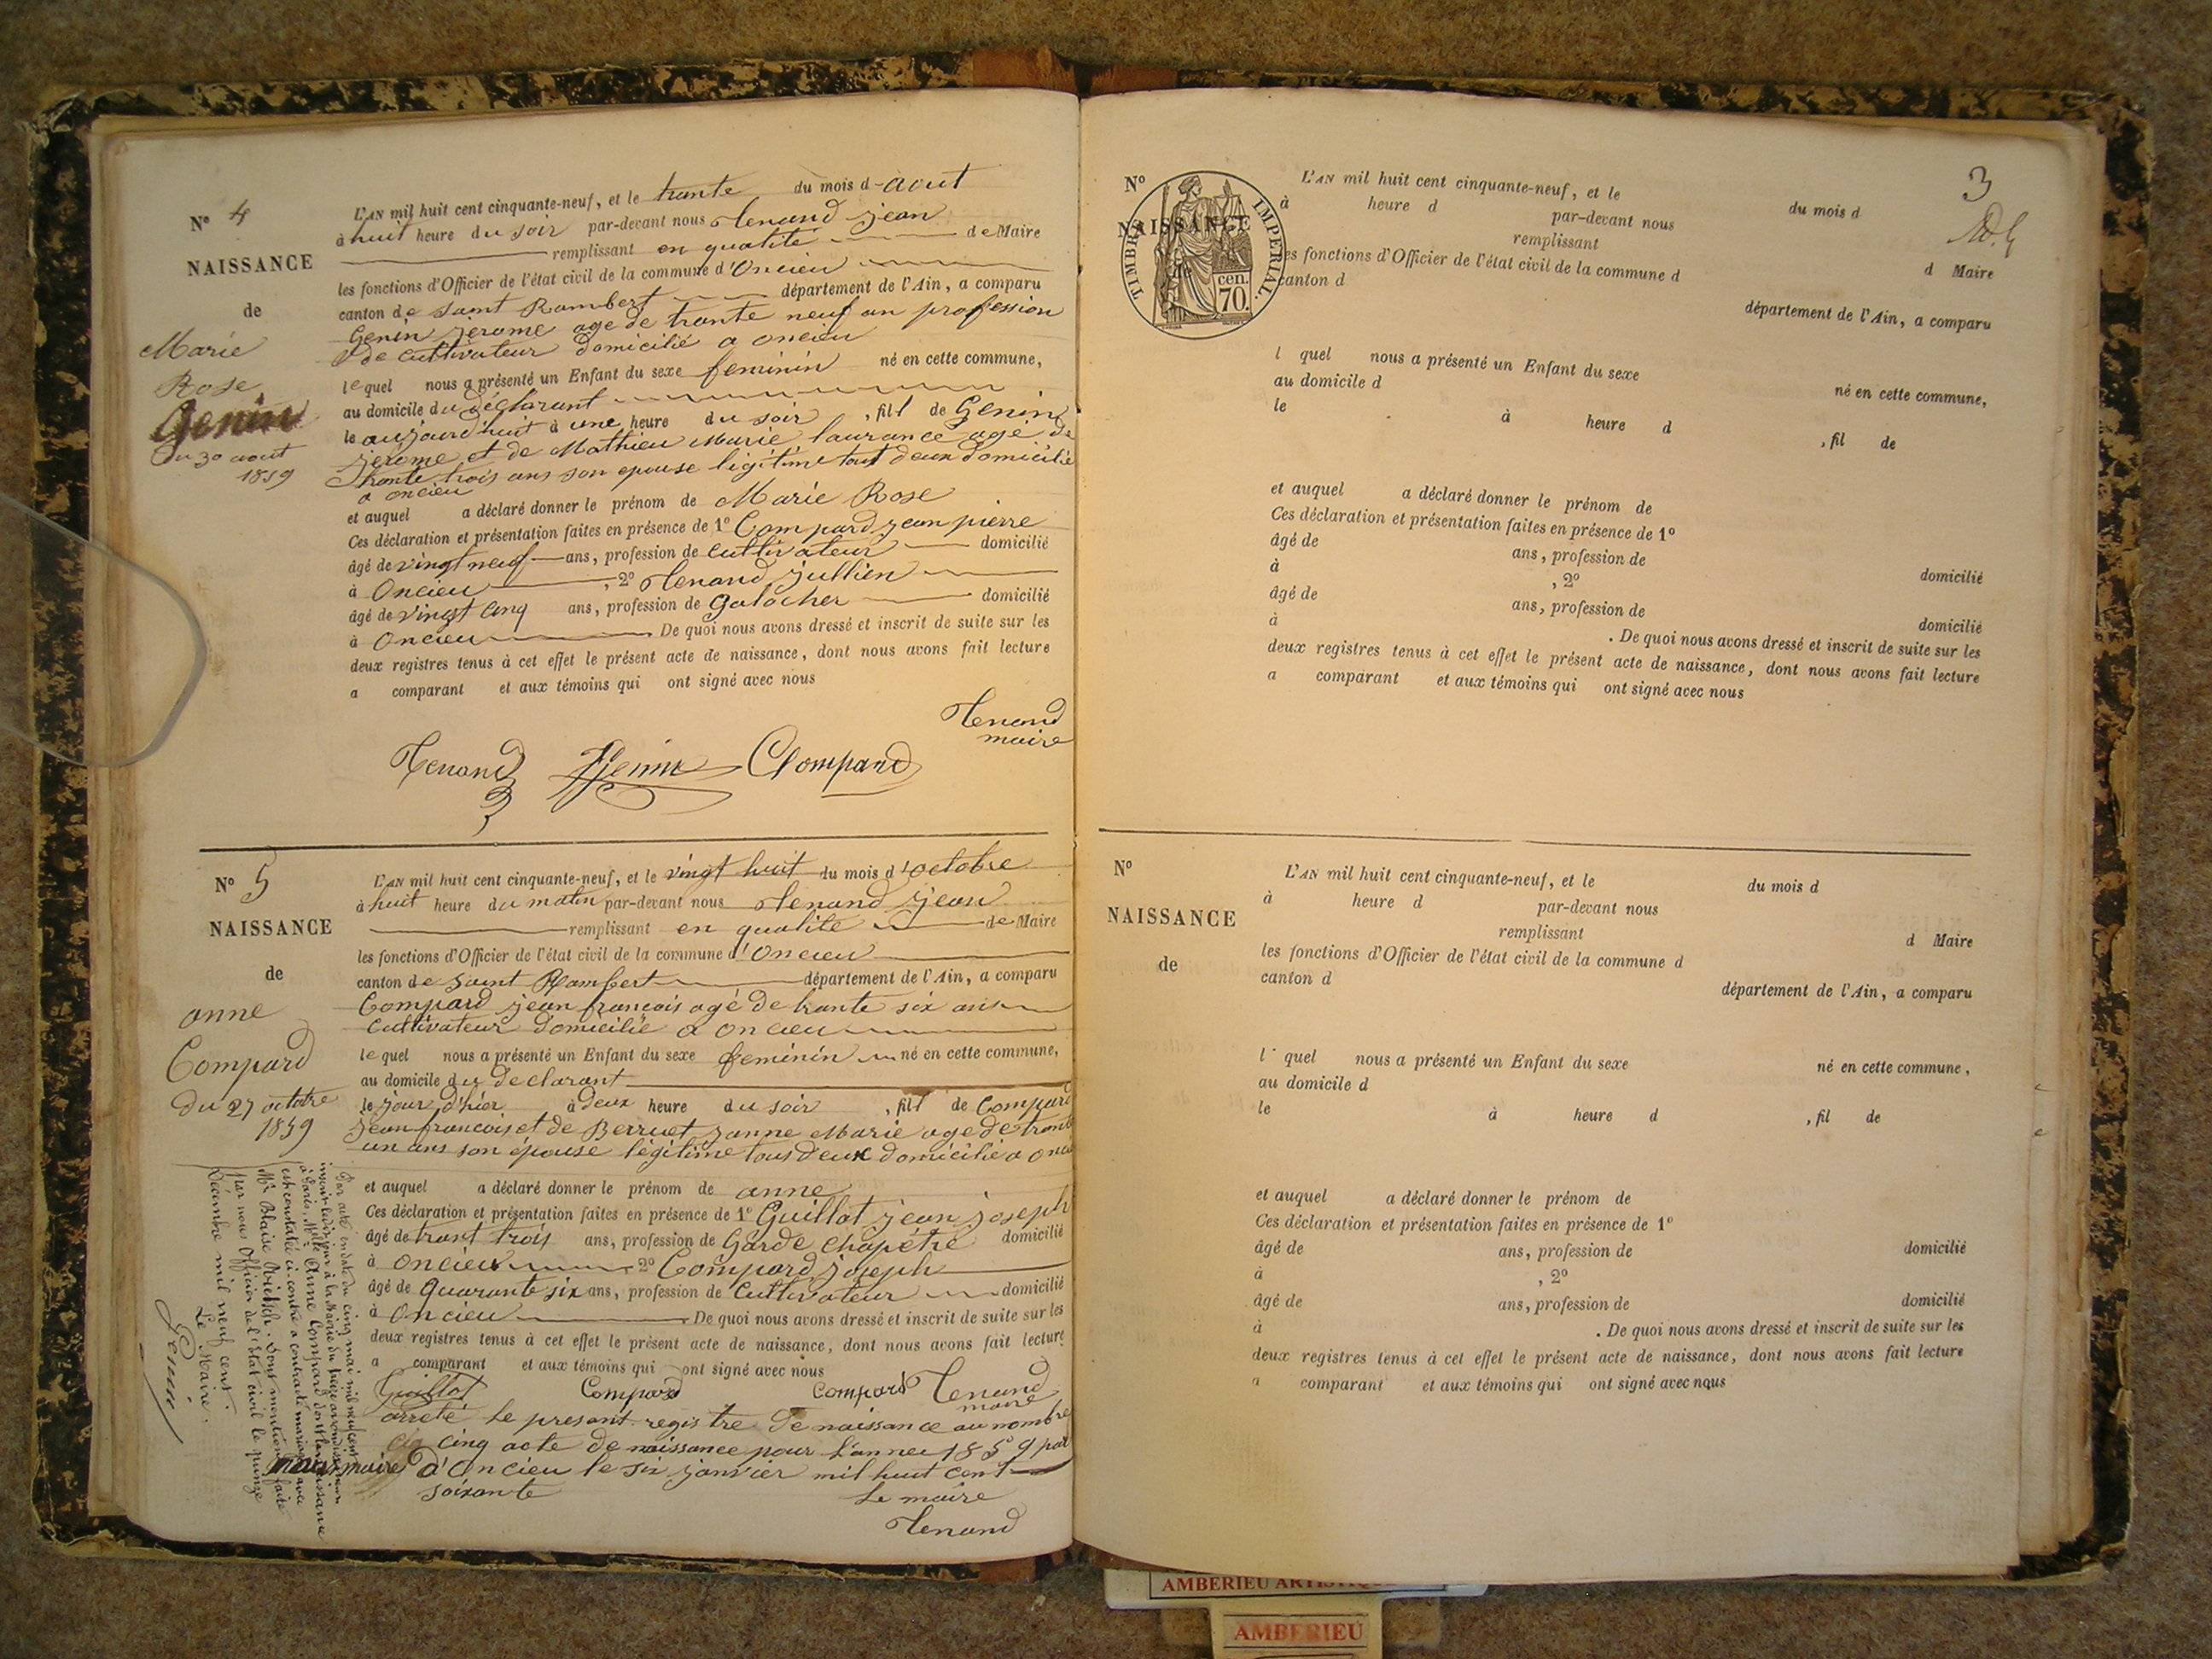 N° 4
NAISSANCE
de
Marie
Rose
Genin
du 30 aout
1859
L'AN mil huit cent cinquante-neuf, et le trante du mois d aout
à huit heure du soir par-devant nous Tenand jean
remplissant en qualité de Maire
les fonctions d'Officier de l'état civil de la commune d'Oncieu
canton de Saint Rambert département de l'Ain, a comparu
Genin jerome age de trante neuf an profession
de cultivateur domicilié a oncieu
lequel nous a présenté un Enfant du sexe feminin né en cette commune,
au domicile du déclarant
le aujourd'huit à une heure du soir, fill de Genin
jerome et de Mathieu Marie laurance agé de
trante trois ans son epouse légitime tout deux domicilié
a oncieu
et auquel a déclaré donner le prénom de Marie Rose
Ces déclaration et présentation faites en présence de 1° Compard jean pierre
âgé de vingt neuf ans, profession de cultivateur domicilié
à Oncieu, 2° Tenand jullien
âgé de vingt cinq ans, profession de galocher domicilié
à Oncieu De quoi nous avons dressé et inscrit de suite sur les
deux registres tenus à cet effet le présent acte de naissance, dont nous avons fait lecture
a comparant et aux témoins qui ont signé avec nous
Tenand
maire
Tenand Genin Compard
N° 5
NAISSANCE
de
anne
Compard
du 27 octobre
1859
L'AN mil huit cent cinquante-neuf, et le vingt huit du mois d'octobre
à huit heure du matin par-devant nous Tenand jean
remplissant en qualité de Maire
les fonctions d'Officier de l'état civil de la commune d'Oncieu
canton de Saint Rambert département de l'Ain, a comparu
Compard jean francois agé de trante six ans
cultivateur domicilié a oncieu
lequel nous a présenté un Enfant du sexe feminin né en cette commune,
au domicile du declarant
le jour d'hier à deux heure du soir, fill de Compard
jean francois et de Berruet janne Marie age de trante
un ans son épouse légitime tous deux domicilié a oncieu
et auquel a déclaré donner le prénom de anne
Ces déclaration et présentation faites en présence de 1° Guillot jean joseph
âgé de trant trois ans, profession de Garde chapétre domicilié
à oncieu 2° Compard joseph
âgé de quarante six ans, profession de cultivateur domicilié
à Oncieu De quoi nous avons dressé et inscrit de suite sur les
deux registres tenus à cet effet le présent acte de naissance, dont nous avons fait lecture
a comparant et aux témoins qui ont signé avec nous
Guillot Compard Compard Tenand
maire
arreté le present registre de naissance au nombre
cinq acte de naissance pour l'annee 1859 par
nous maire d'Oncieu le six janvier mil huit cent
soixante Le maire
Tenand
Par acte en date du cinq mai mil neuf cent
inscrit le dit jour à la Mairie du arrondissement
à Paris, Melle Anne Compard dont la naissance
est constatée ci-contre a contracté mariage avec
Mr Blaise . Dont mention faite
par nous Officier de l'Etat civil le quinze
Décembre mil neuf cent.
Le Maire.
3
N°
NAISSANCE
de
TIMBRE IMPERIAL.
70. cen.
L'AN mil huit cent cinquante-neuf, et le du mois d
à heure d par-devant nous
remplissant d Maire
les fonctions d'Officier de l'état civil de la commune d
canton d département de l'Ain, a comparu
l quel nous a présenté un Enfant du sexe né en cette commune,
au domicile d
le à heure d , fil de
et auquel a déclaré donner le prénom de
Ces déclaration et présentation faites en présence de 1°
âgé de ans, profession de domicilié
à , 2°
âgé de ans, profession de domicilié
à . De quoi nous avons dressé et inscrit de suite sur les
deux registres tenus à cet effet le présent acte de naissance, dont nous avons fait lecture
a comparant et aux témoins qui ont signé avec nous
N°
NAISSANCE
de
L'AN mil huit cent cinquante-neuf, et le du mois d
à heure d par-devant nous
remplissant d Maire
les fonctions d'Officier de l'état civil de la commune d
canton d département de l'Ain, a comparu
l quel nous a présenté un Enfant du sexe né en cette commune,
au domicile d
le à heure d , fil de
et auquel a déclaré donner le prénom de
Ces déclaration et présentation faites en présence de 1°
âgé de ans, profession de domicilié
à , 2°
âgé de ans, profession de domicilié
à . De quoi nous avons dressé et inscrit de suite sur les
deux registres tenus à cet effet le présent acte de naissance, dont nous avons fait lecture
a comparant et aux témoins qui ont signé avec nous
AMBERIEU
AMBERIEU